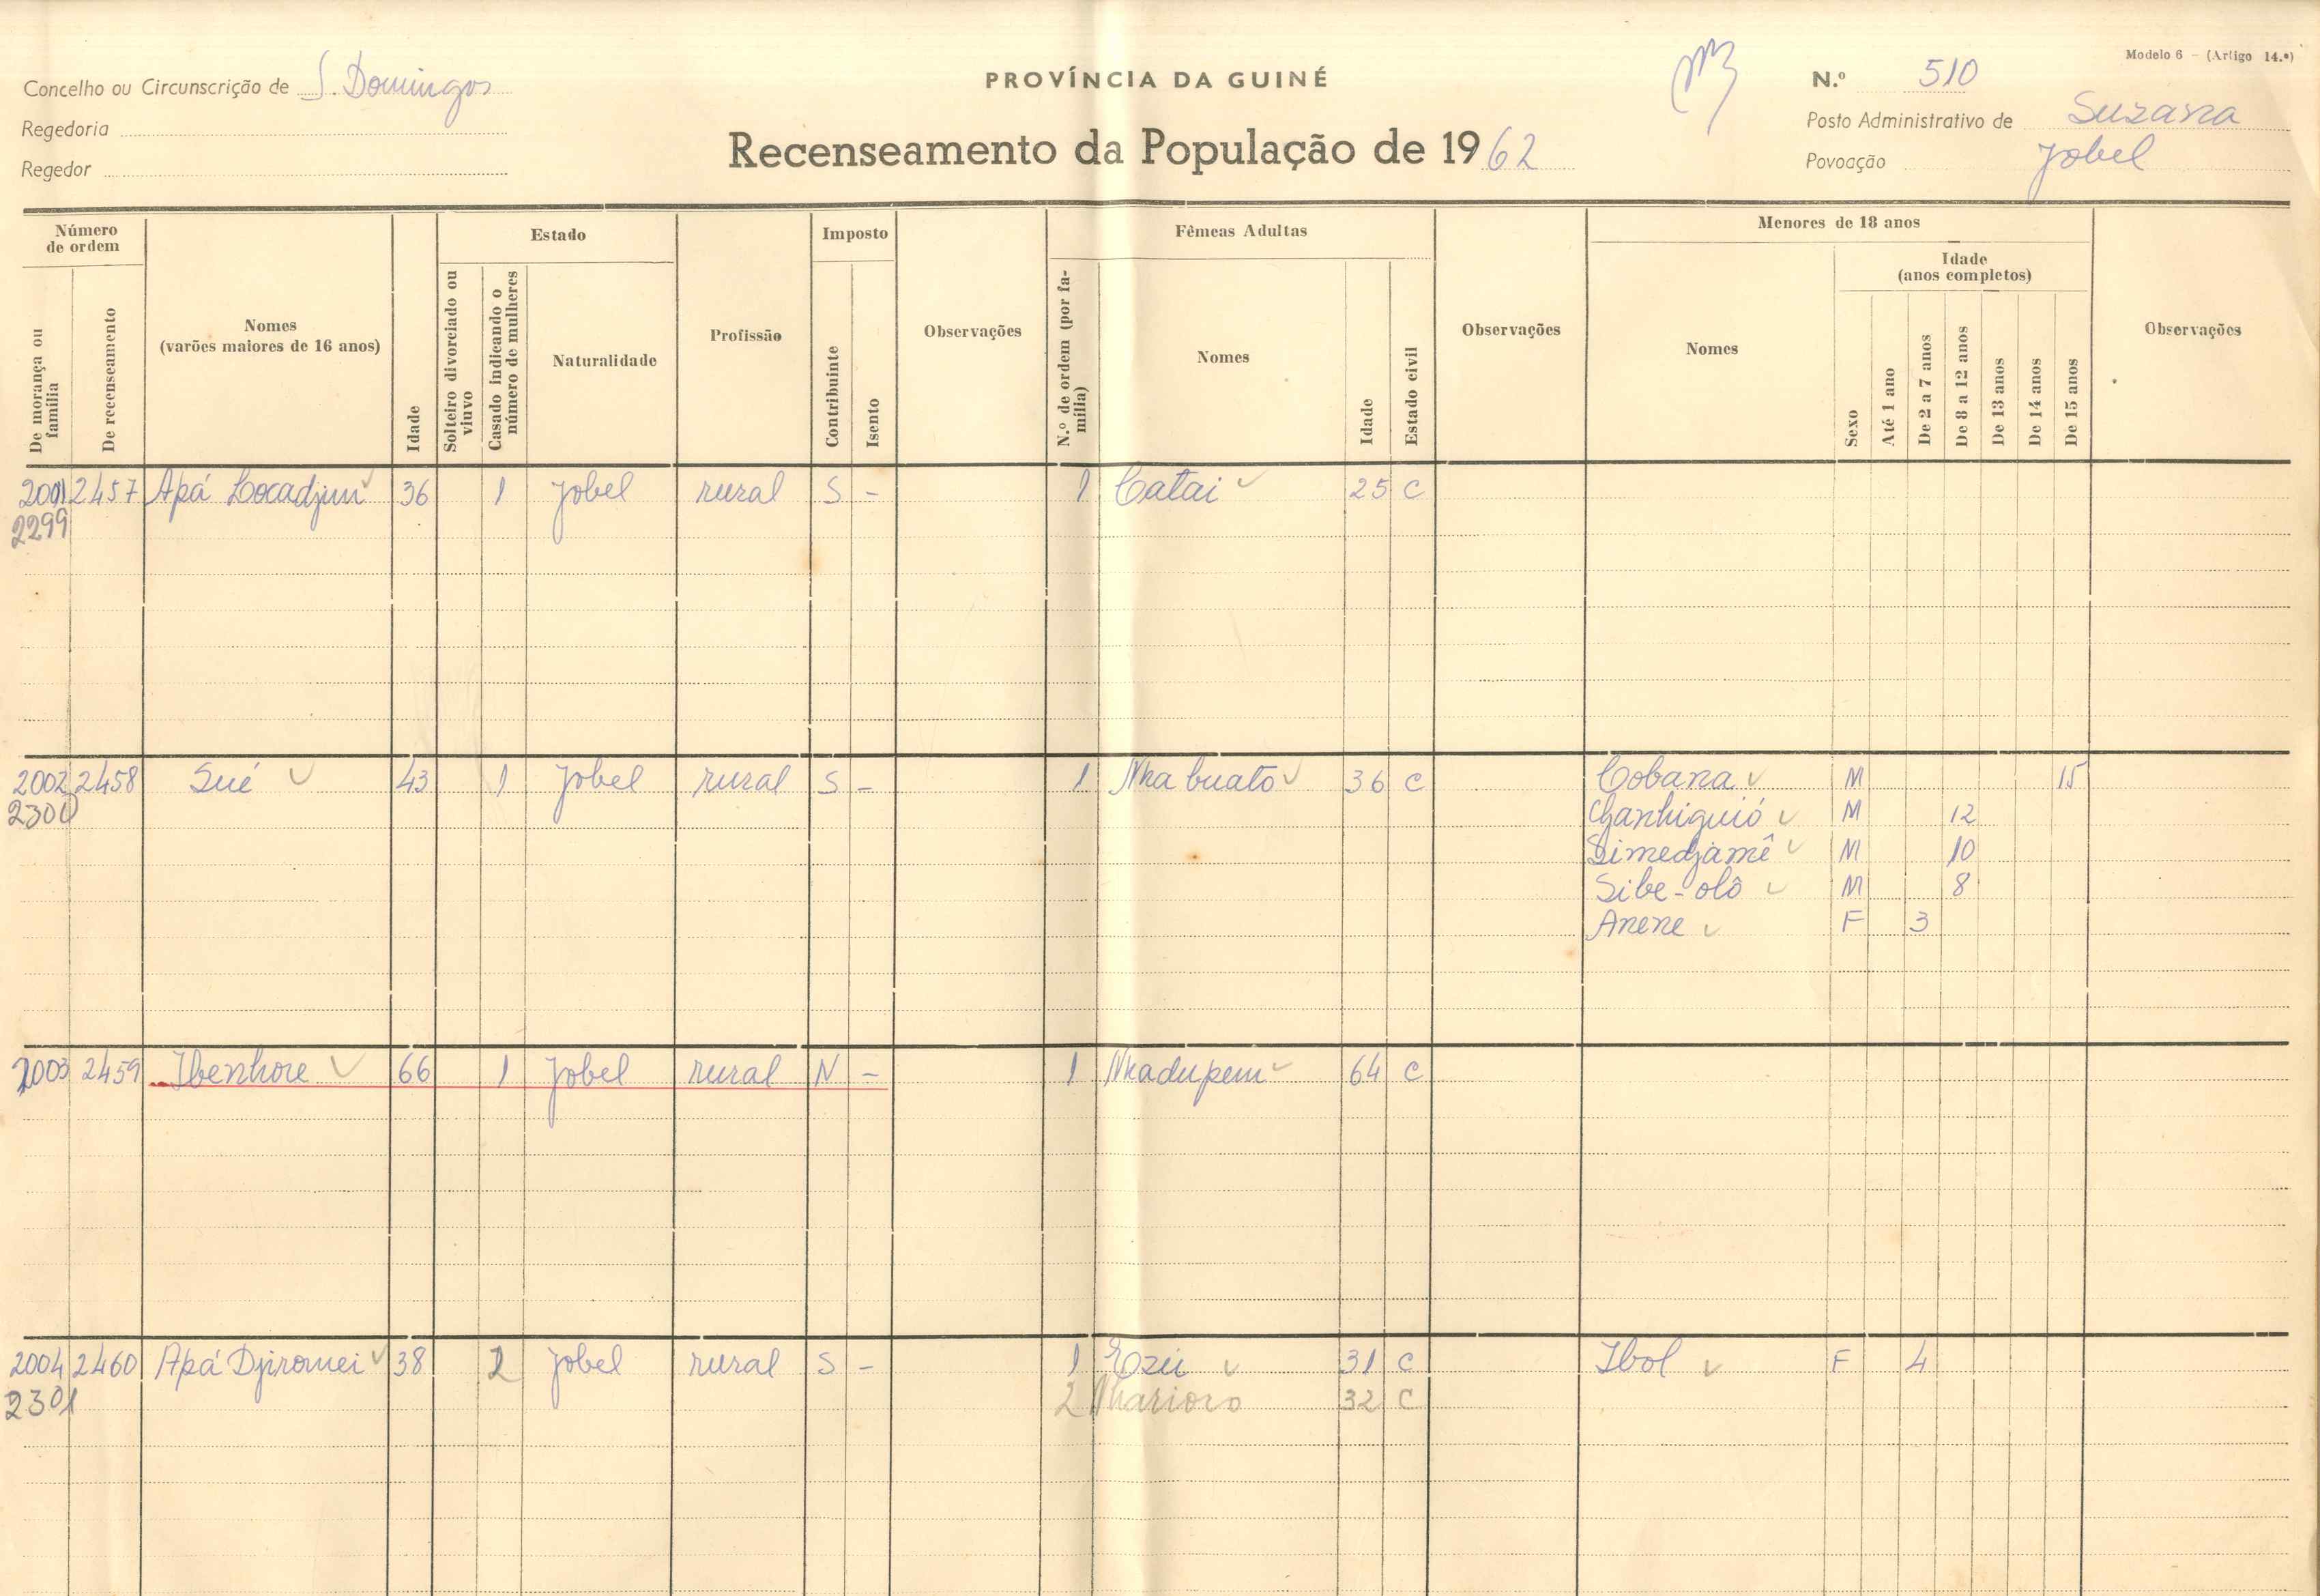 Modelo 6 - (Artigo 14.º)
Concelho ou Circunscrição de S. Domingos
PROVÍNCIA DA GUINÉ
N.º 510
Regedoria
Posto Administrativo de Suzana
Regedor
Recenseamento da População de 1962
Povoação Jobel
Número de ordem
De morança ou família
De recenseamento
Nomes
(varões maiores de 16 anos)
Idade
Estado
Solteiro divorciado ou viuvo
Casado indicando o número de mulheres
Naturalidade
Profissão
Imposto
Contribuinte
Isento
Observações
Fêmeas Adultas
N.º de ordem (por família)
Nomes
Idade
Estado civil
Observações
Menores de 18 anos
Nomes
Sexo
Idade
(anos completos)
Até 1 ano
De 2 a 7 anos
De 8 a 12 anos
De 13 anos
De 14 anos
De 15 anos
Observações
2001 2457 Apá Locadjum 36 1 Jobel rural S - 1 Catai 25 C
2299
2002 2458 Sué 43 1 Jobel rural S - 1 Nhabuato 36 C Cobana M 15
2300 Ganhiguió M 12
Simedjamê M 10
Sibe-olô M 8
Anene F 3
2003 2459 Ibenhore 66 1 Jobel rural N - 1 Nhadupem 64 C
2004 2460 Apá Djiromei 38 2 Jobel rural S - 1 Ezú 31 C Ibol F 4
2301 2 Nharioro 32 C